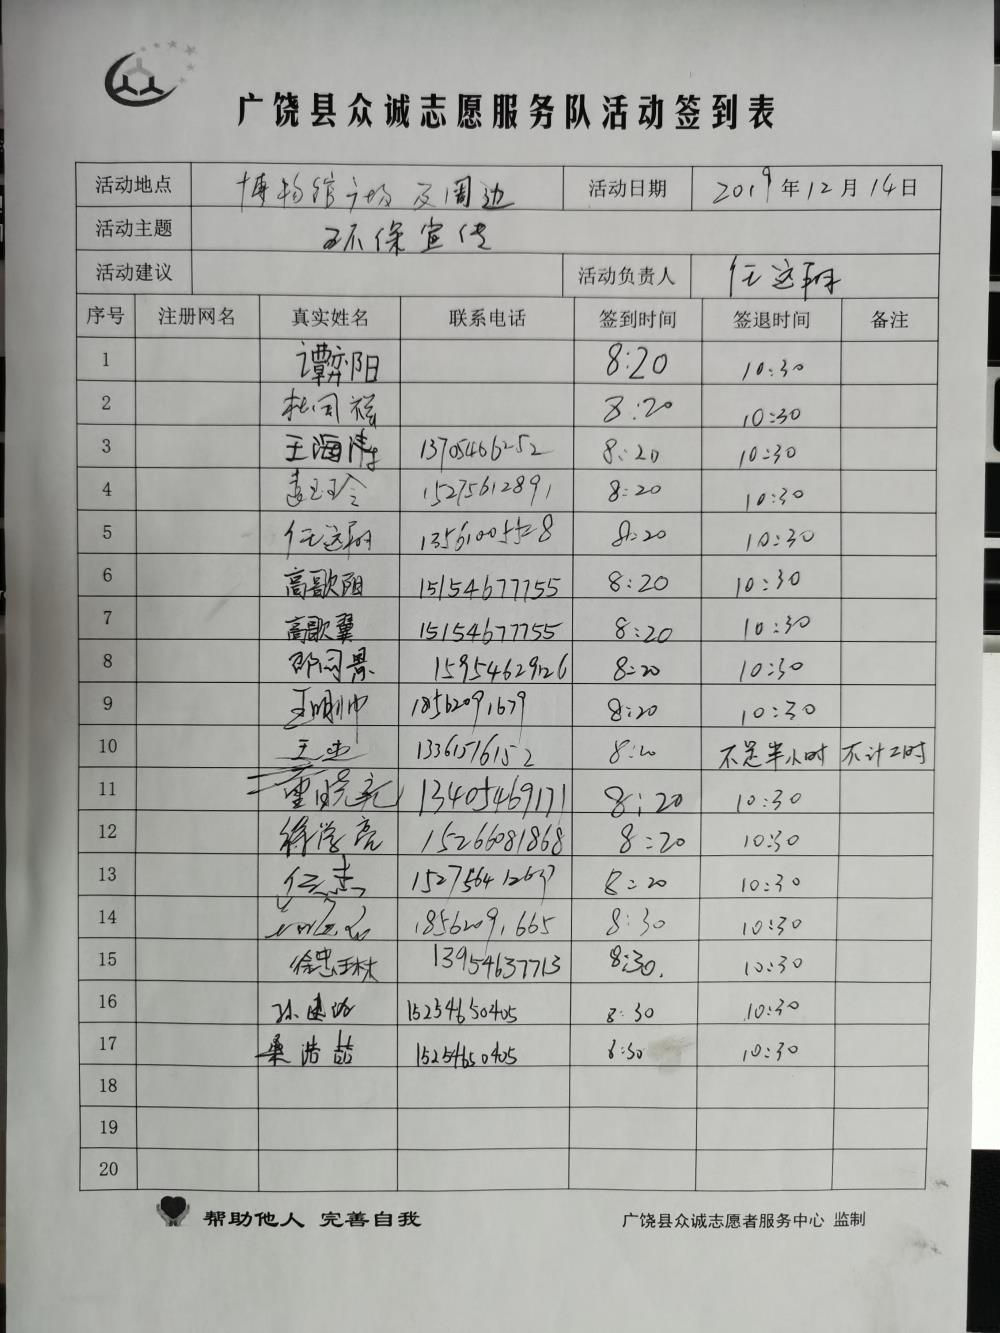 广饶县众诚志愿服务队活动签到表
活动地点 博物馆广场及周边 活动日期 2019年12月14日
活动主题 环保宣传
活动建议 活动负责人 任运翔
序号 注册网名 真实姓名 联系电话 签到时间 签退时间 备注
1 谭弈阳 8:20 10:30
2 8:20 10:30
3 王海涛 13705466252 8:20 10:30
4 15275612891 8:20 10:30
5 8:20 10:30
6 高歌阳 15154677755 8:20 10:30
7 高歌翼 15154677755 8:20 10:30
8 15954629126 8:20 10:30
9 王明帅 18562091679 8:20 10:30
10 13361516152 8:20 不足半小时 不计工时
11 雷晓亮 13405469171 8:20 10:30
12 徐学亮 15266081868 8:20 10:30
13 任杰 8:20 10:30
14 18562091665 8:30 10:30
15 13954637713 8:30. 10:30
16 15254650405 8:30 10:30
17 桑浩喆 15254650405 8:30 10:30
18
19
20
帮助他人 完善自我 广饶县众诚志愿者服务中心 监制